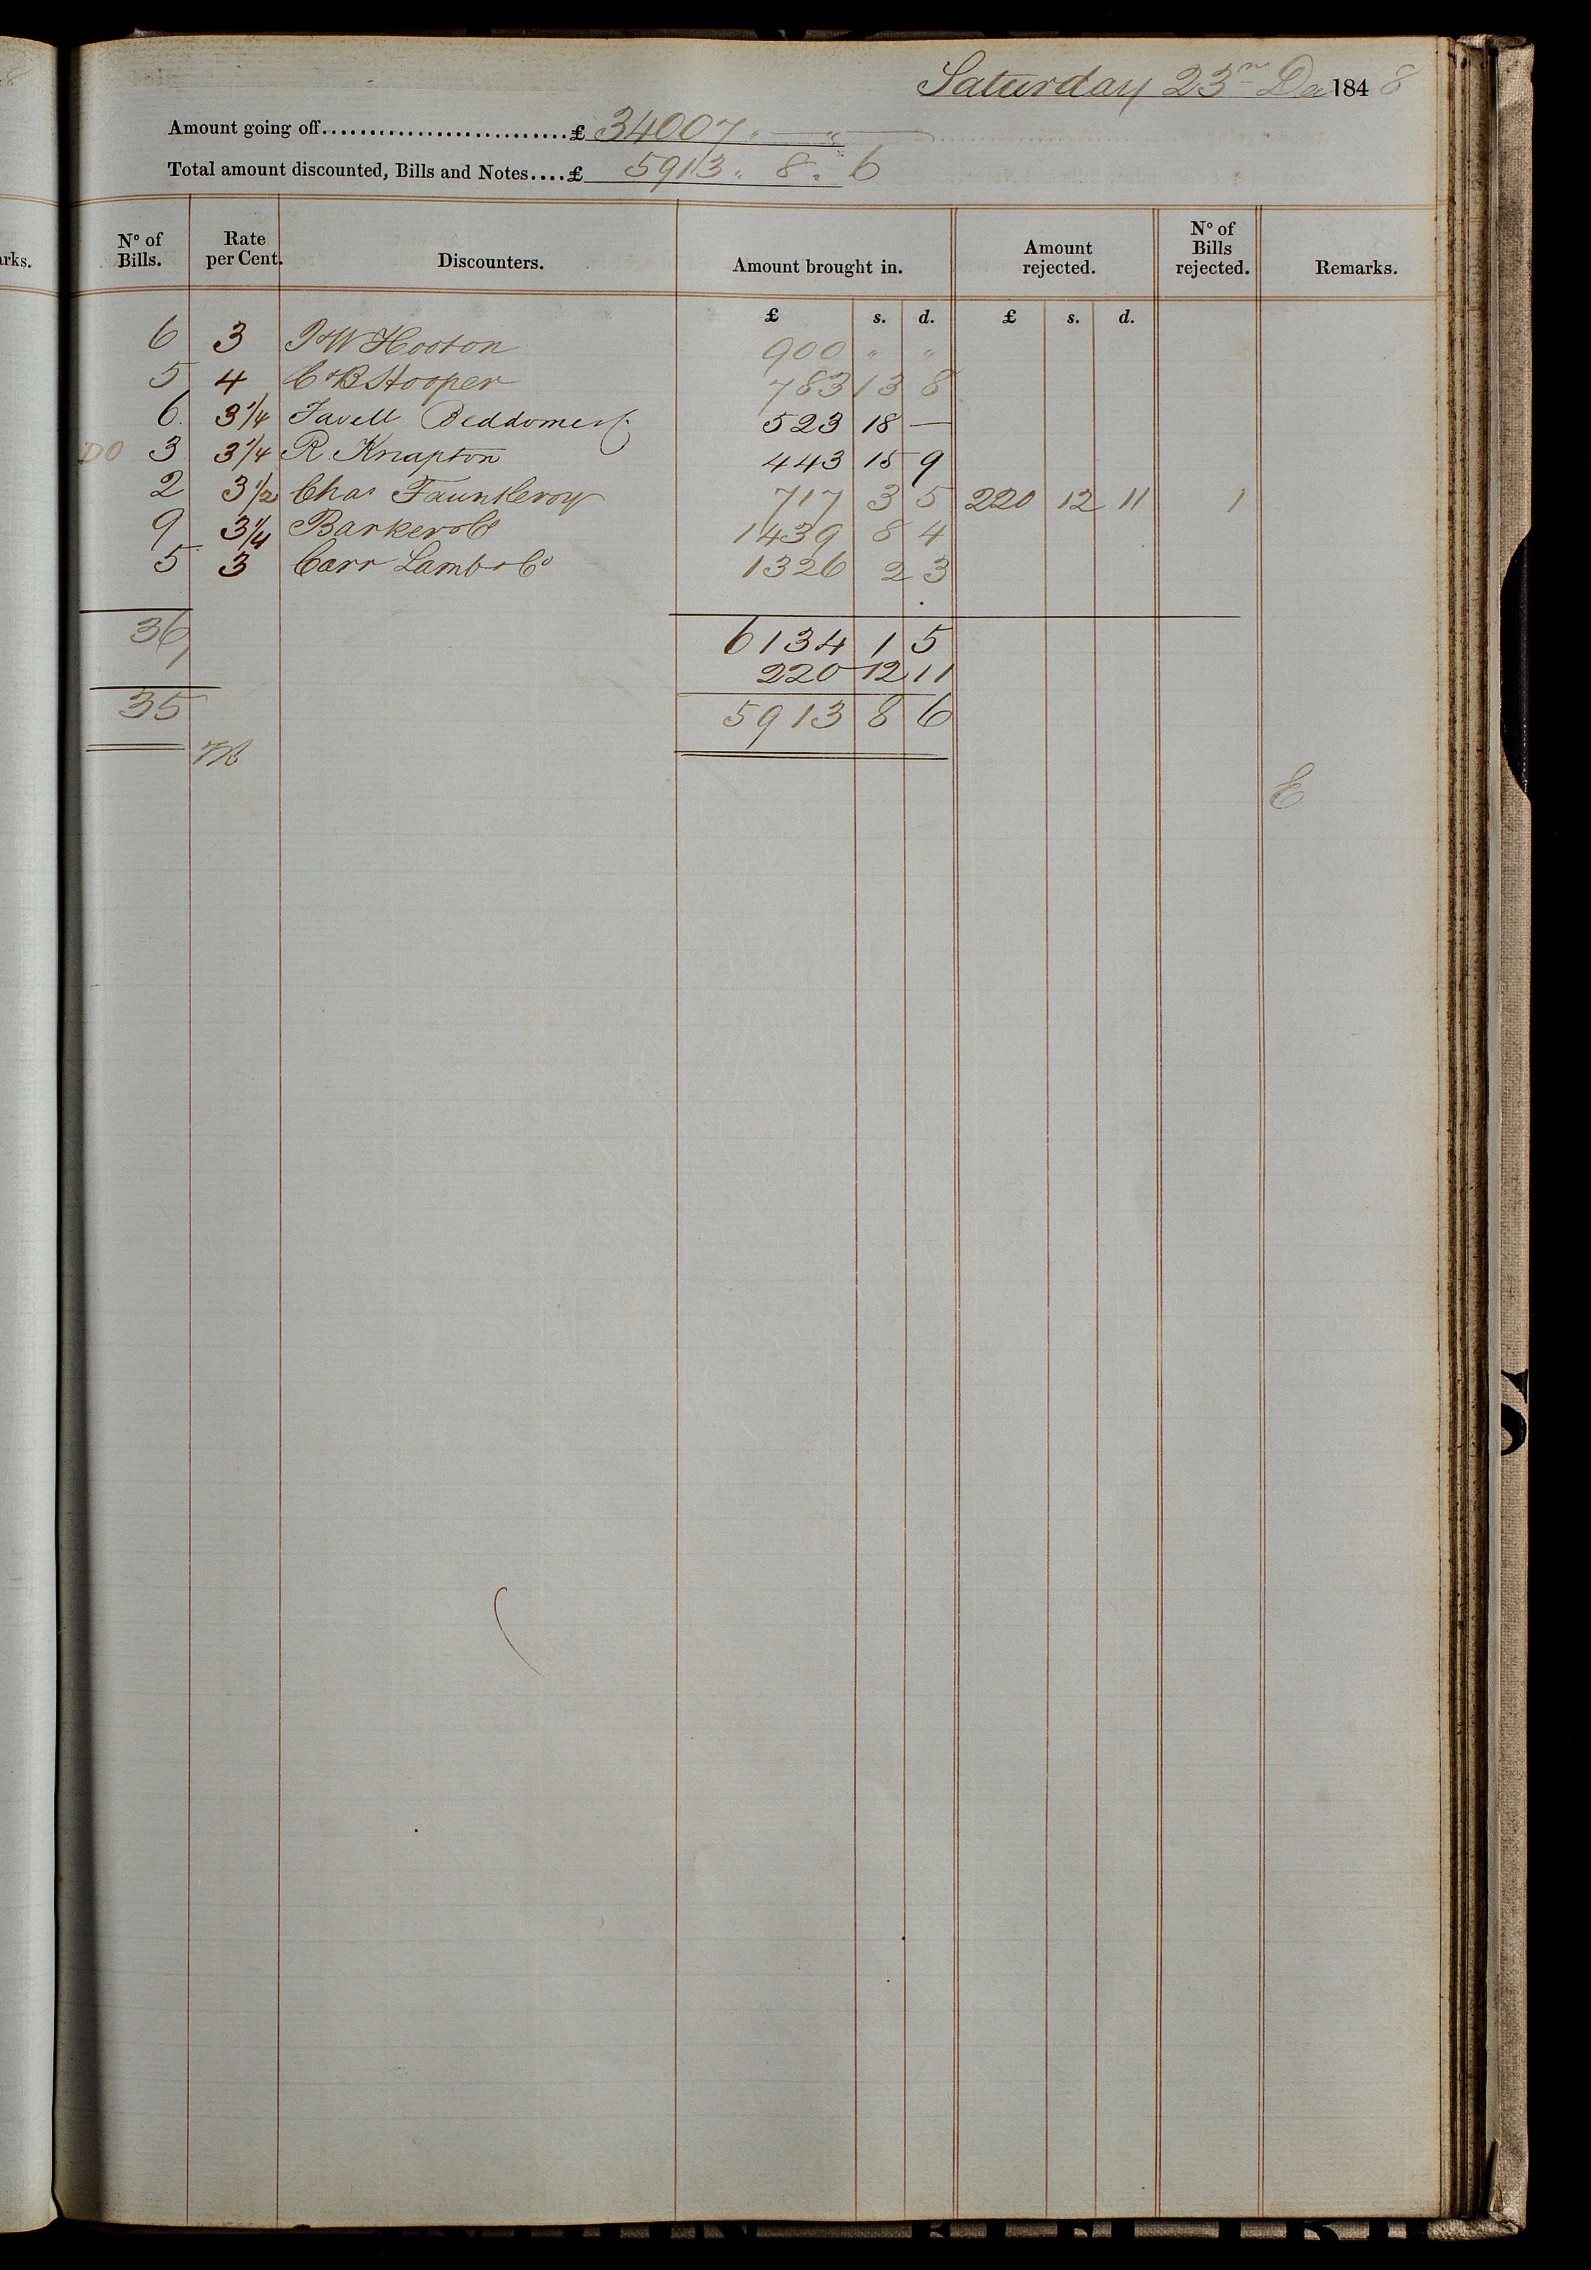 8
arks.
Saturday 23rd De 1848
Amount going off..........................£ 34007 " — " —
Total amount discounted, Bills and Notes....£ 5913 " 8 " 6
No of Bills. Rate per Cent. Discounters. Amount brought in. Amount rejected. No of Bills rejected. Remarks.
£ s. d. £ s. d.
6 3 J & W Hooton 900 " "
5 4 C & B Hooper 783 13 8
6 3 1/4 Favell Beddome & C 523 18 —
DO 3 3 1/4 R. Knapton 443 15 9
2 3 1/2 Chas Fauntleroy 717 3 5 220 12 11 1
9 3 1/4 Barker & Co 1439 8 4
5 3 Carr Lamb & Co 1326 2 3
36 6134 1 5
1 220 12 11
35 5913 8 6
E